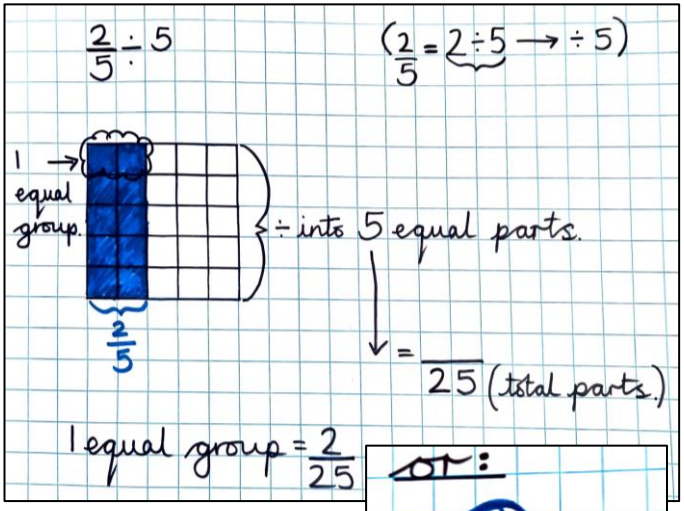 2/5 ÷ 5
(2/5 = 2÷5 → ÷ 5)
1 →
equal
group.
÷ into 5 equal parts.
2/5
= /25 (total parts.)
1 equal group = 2/25
or: